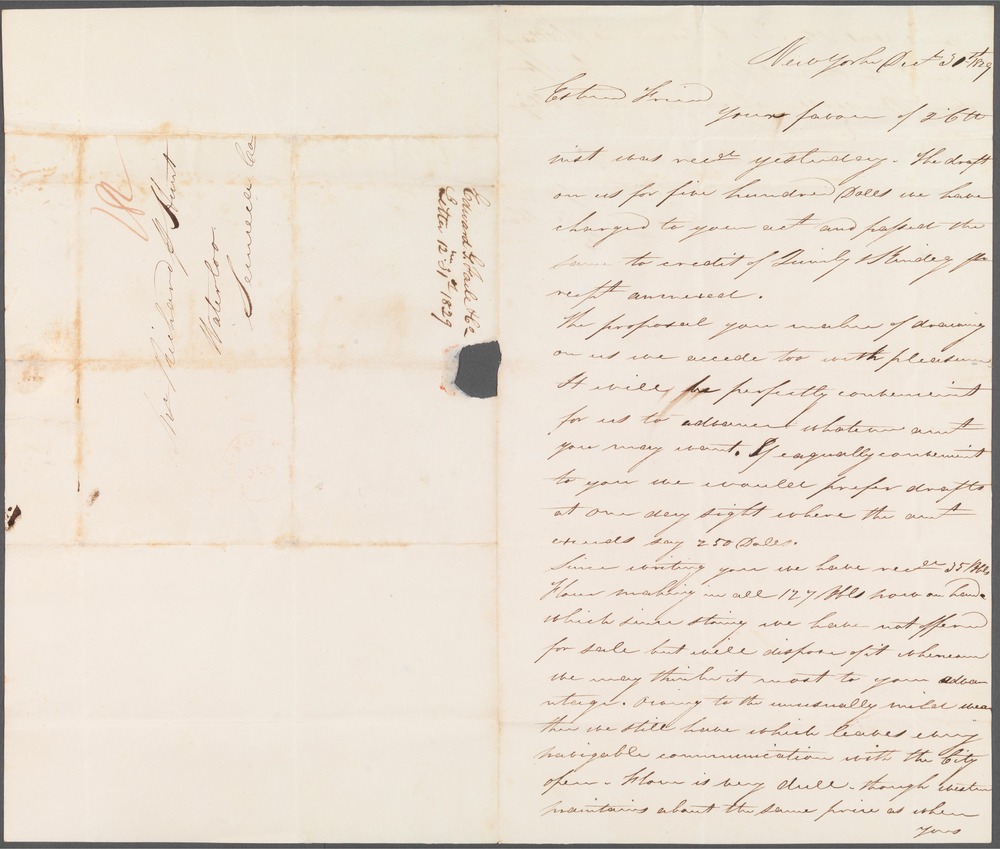 New York Dec 30th 1829
Esteemed Friend
Your favour of 26th
inst was recd yesterday. The draft
on us for five hundred Dolls we have
charged to your act and passed the
same to credit of &
rect annexed.
The proposal you make of drawing
on us we accede too with pleasure
It will be perfectly convenient
for us to advance whatever amt
you may want. If equally convenient
to you we would prefer drafts
at one day sight where the amt
exceeds say 250 Dolls.
Since writing you we have recd 35 bbls
Flour making in all 127 bbls now on hand
which since storing we have not offered
for sale but will dispose of it whenever
we may think it most to your advan
ntage. Owing to the unusually mild wea
ther we still have which leaves every
navigable communication with the City
open. Flour is very dull. though western
maintains about the same price as when
yours
Edward H Co
Letter 12 mo 31st 1829
Richard P Hunt
Waterloo
Senneca Co